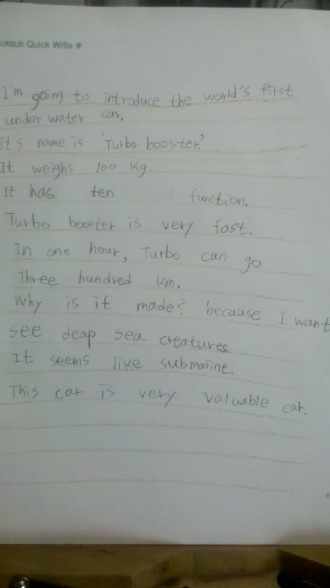 uksuk Quick Write #
I'm going to introduce the world's first
under water car.
It's name is "Turbo booster."
It weighs 100 kg.
It has ten function.
Turbo booster is very fast.
In one hour, Turbo can go
Three hundred km.
Why is it made? because I want
see deap sea creatures
It seems like submarine.
This car is very valuable car.